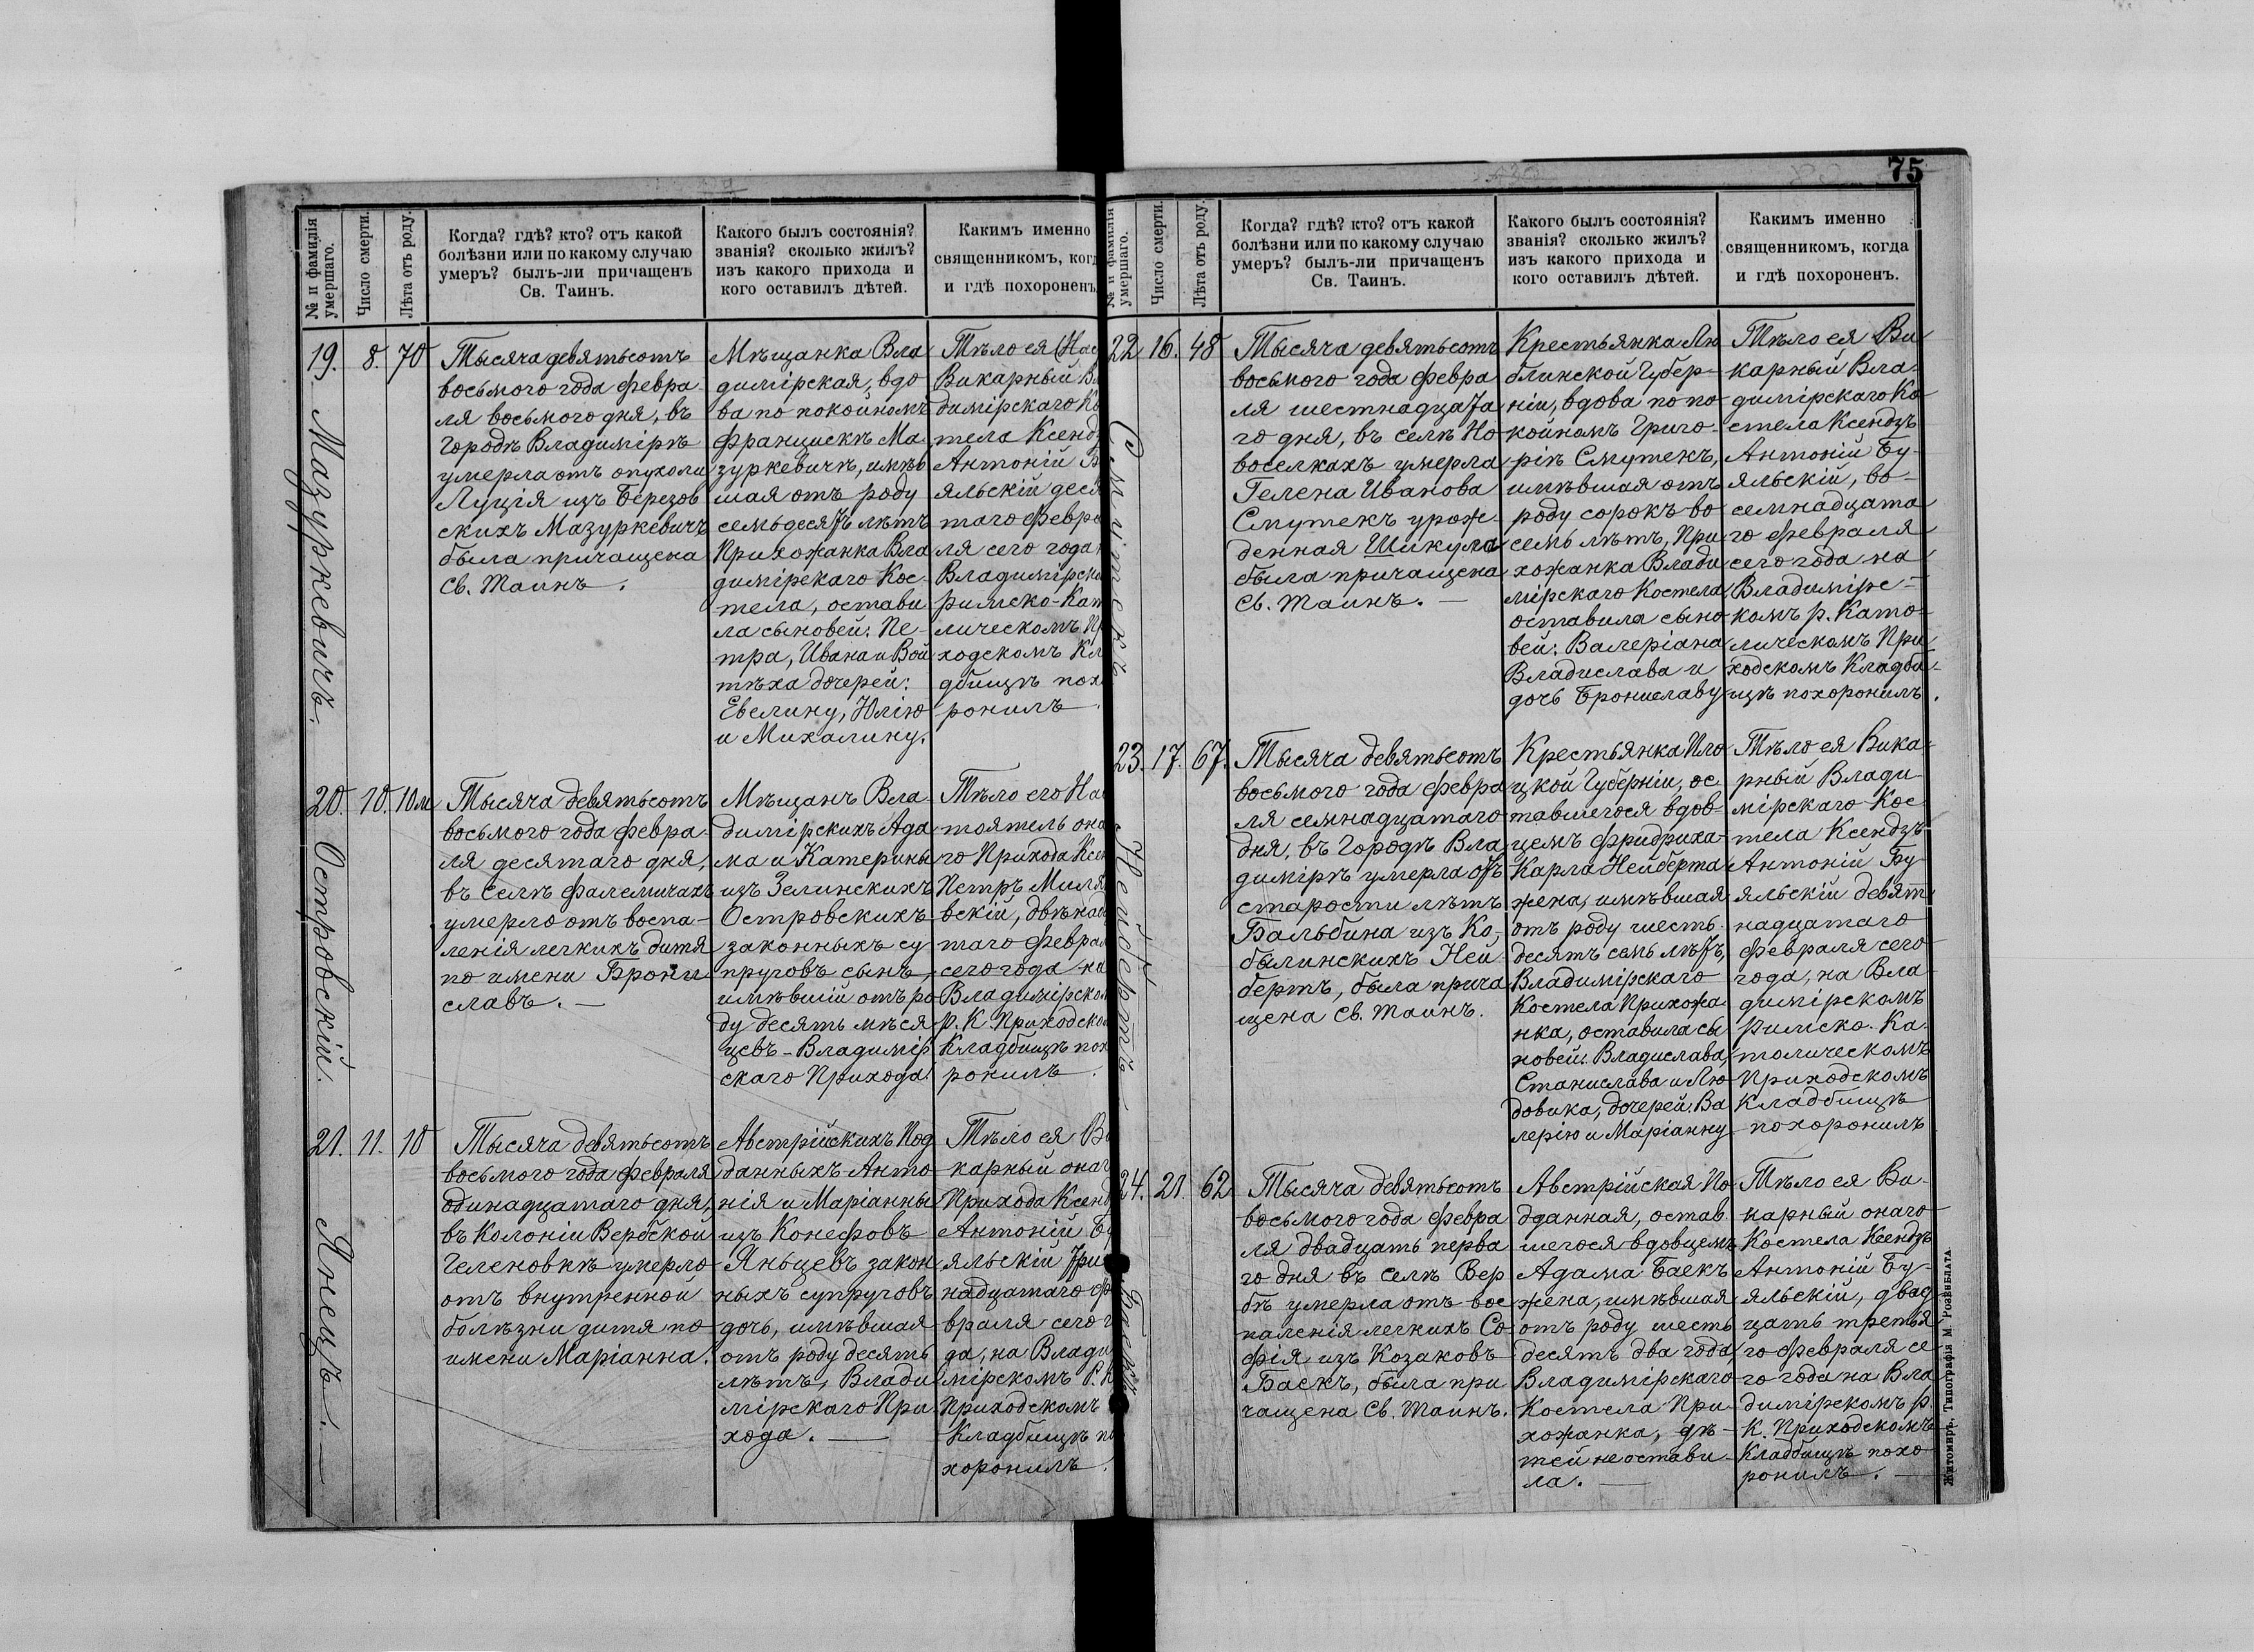 75
№ и фамилія
умершаго.
Число смерти.
Лѣта отъ роду.
Когда? гдѣ? кто? отъ какой
болѣзни или по какому случаю
умеръ? былъ-ли причащенъ
Св. Таинъ.
Какого былъ состоянія?
званія? сколько жилъ?
изъ какого прихода и
кого оставилъ дѣтей.
Какимъ именно
священникомъ, когд
и гдѣ похороненъ
19.
Мазуркевичъ.
8.
70
Тысяча девятьсотъ
восьмого года февра-
ля восьмого дня, въ
Городѣ Владимірѣ
умерла отъ опухоли
Луція изъ Березов
скихъ Мазуркевичъ
была причащена
Св. Таинъ.
Мѣщанка Вла
димірская, вдо
ва по покойномъ
Францискѣ Ма
зуркевичѣ, имѣв
шая отъ роду
семьдесятъ лѣтъ
Прихожанка Вла
димірскаго Кос-
тела, остави
ла сыновей: Пе-
тра, Ивана и Вой
тѣха дочерей:
Евелину, Юлію
и Михалину.
Тѣло ея
Викарный Вл
димірскаго Ко
тела Ксендз
Антоній Б
яльскій деся
таго февра
ля сего года н
Владимірско
римско-Кат
лическомъ Пр
ходскомъ Кл
дбищѣ похо
ронилъ.
20.
Островскій.
10.
10 м
Тысяча девятьсотъ
восьмого года февра-
ля десятаго дня,
въ селѣ Фалемичахъ
умерло отъ воспа-
ленія легкихъ дитя
по имени Брони
славъ. —
Мѣщанъ Вла-
димірскихъ Ада
ма и Катерины
изъ Зелинскихъ
Островскихъ
законныхъ су
пруговъ сынъ
имѣвшій отъ ро
ду десять мѣся
цевъ - Владимір
скаго Прихода.
Тѣло его Нас
тоятель она
го Прихода Ксен
Петръ Миля
вскій, двѣнад
таго феврал
сего года на
Владимірском
р. К. Приходском
Кладбищѣ пох
ронилъ.
21.
Янецъ. —
11.
10
Тысяча девятьсотъ
восьмого года февраля
одинадцатаго дня,
въ Колоніи Вербской
Геленовкѣ умерло
отъ внутренной
болѣзни дитя по
имени Маріанна.
Австрійскихъ Под
данныхъ Анто
нія и Маріанны
изъ Конефовъ
Яньцевъ закон
ныхъ супруговъ
дочь, имѣвшая
отъ роду десять
лѣтъ, Влади
мірскаго При
хода. —
Тѣло ея Ви
карный онаг
Прихода Ксенд
Антоній Бу
яльскій три
надцатаго фе
враля сего г
да, на Влади
мірскомъ Р. К
Приходскомъ
Кладбищѣ по
хоронилъ.
№ и фамилія
умершаго.
Число смерти.
Лѣта отъ роду.
Когда? гдѣ? кто? отъ какой
болѣзни или по какому случаю
умеръ? былъ-ли причащенъ
Св. Таинъ.
Какого былъ состоянія?
званія? сколько жилъ?
изъ какого прихода и
кого оставилъ дѣтей.
Какимъ именно
священникомъ, когда
и гдѣ похороненъ.
22
Смутекъ
16.
48
Тысяча девятьсотъ
восьмого года февра
ля шестнадцата
го дня, въ селѣ Но
воселкахъ умерла
Гелена Иванова
Смутекъ урож-
денная Шикула
была причащена
Св. Таинъ. —
Крестьянка Лю
блинской Губер-
ніи, вдова по по
койномъ Григо-
ріѣ Смутекъ,
имѣвшая отъ
роду сорокъ во
семь лѣтъ, При
хожанка Влади
мірскаго Костела,
оставила сыно
вей: Валеріана
Владислава и
дочь Брониславу
Тѣло ея Ви
карный Вла-
димірскаго Ко
стела Ксендзъ
Антоній Бу-
яльскій, во-
семнадцата
го февраля
сего года на
Владимірс-
комъ р. Като-
лическомъ При
ходскомъ Кладби-
щѣ похоронилъ.
23.
Нейбертъ
17.
67.
Тысяча девятьсотъ
восьмого года февра
ля семнадцатаго
дня, въ Городѣ Вла
димірѣ умерла отъ
старости лѣтъ
Бальбина изъ Ко-
былинскихъ Ней
бертъ, была прича
щена Св. Таинъ.
Крестьянка Пло
цкой Губерніи, ос
тавшегося вдов-
цемъ Фридриха-
Карла Нейберта
жена, имѣвшая
отъ роду шесть
десятъ семь лѣтъ,
Владимірскаго
Костела Прихожа
нка, оставила сы
новей: Владислава,
Станислава и Лю
довика, дочерей: Ва
лерію и Маріанну
Тѣло ея Вика-
рный Влади
мірскаго Кос
тела Ксендзъ
Антоній Бу-
яльскій девят
надцатаго
февраля сего
года, на Вла
димірскомъ
Римско-Ка-
толическомъ
Приходскомъ
Кладбищѣ
похоронилъ
24.
Баекъ
21.
62
Тысяча девятьсотъ
восьмого года февра
ля двадцать перва
го дня въ селѣ Вер
бѣ умерла отъ вос
паленія легкихъ Со
фія изъ Козаковъ
Баекъ, была при
чащена Св. Таинъ.
Австрійская По
дданная, остав
шегося вдовцемъ
Адама Баекъ
жена, имѣвшая
отъ роду шесть
десятъ два года,
Владимірскаго
Костела При-
хожанка, дѣ-
тей не остави
ла. —
Тѣло ея Ви-
карный онаго
Костела Ксендзъ
Антоній Бу-
яльскій, двад
цать третья
го февраля се
го года на Вла
димірскомъ р.
К. Приходскомъ
Кладбищѣ похо
ронилъ. —
Житомиръ, Типографія М. Розенблата.